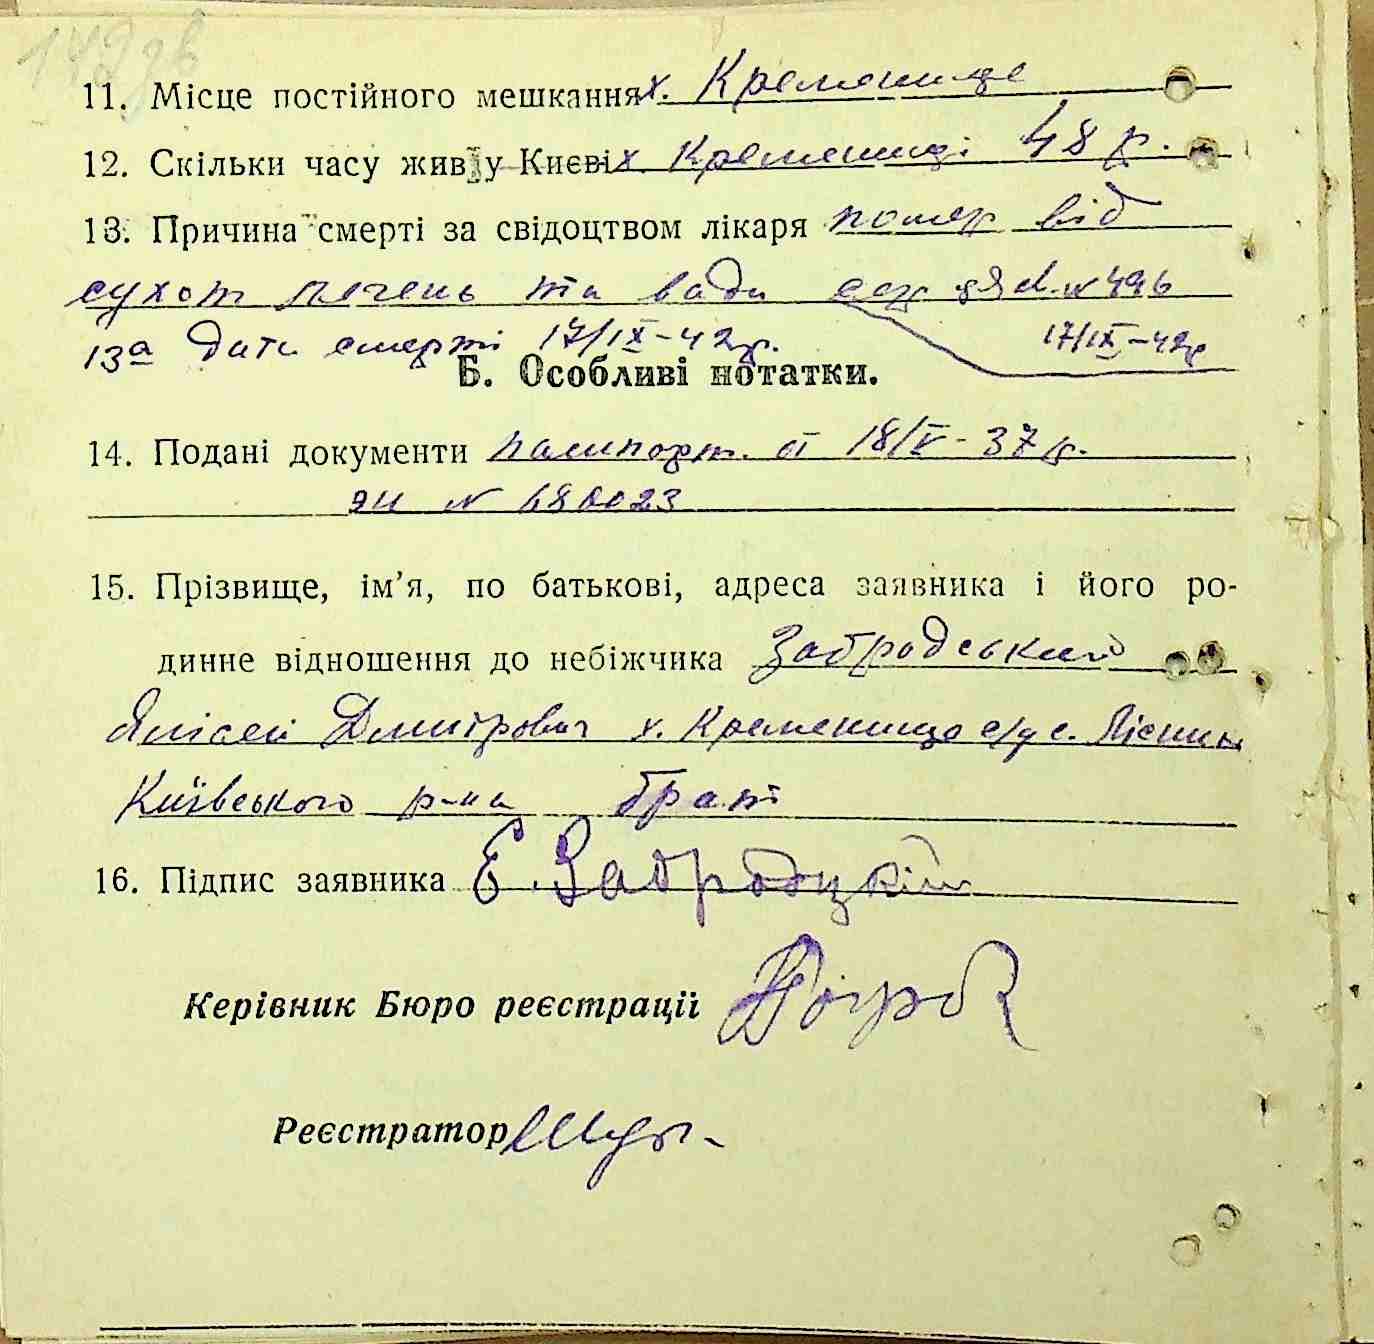 142 зв
11. Місце постійного мешкання х. Кременище
12. Скільки часу жив у Києві х. Кременищі 48 р.
13. Причина смерті за свідоцтвом лікаря помер від
сухот лечень та вади сердця л. N 496
13а Дата смерті 17/IX-42р. 17/IX-42р
Б. Особливі нотатки.
14. Подані документи пашпорт. от 18/IV-37р.
ЭИ N 680023
15. Прізвище, ім'я, по батькові, адреса заявника і його ро-
динне відношення до небіжчика Забродський
Дмитрович х. Кременище с/у с. Лісники
Київського р-на брат
16. Підпис заявника Е. Забродцкий
Керівник Бюро реєстрації
Реєстратор